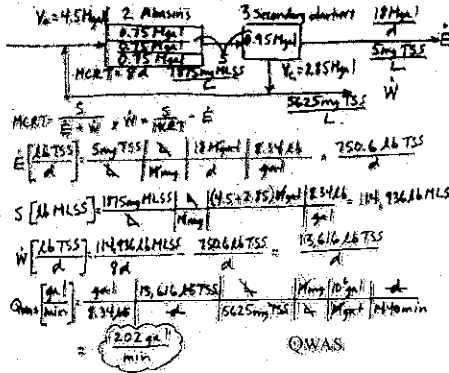 Va=4.5Mgal 2 Abasins 3 Secondary clarifiers 18Mgal/d
0.75 Mgal
0.75 Mgal 0.95 Mgal Ė
0.75 Mgal S 5mg TSS/L
MCRT=8d 1875mg MLSS/L Vc=2.85Mgal Ẇ
5625mg TSS/L
MCRT= S/(Ė+Ẇ) Ẇ= S/MCRT - Ė
Ė[lb TSS/d] = 5mg TSS/L | L/Mmg | 18 Mgal/d | 8.34lb/gal = 750.6 lb TSS/d
S [lb MLSS] = 1875mg MLSS/L | L/Mmg | (4.5+2.85) Mgal | 8.34 lb/gal = 114,936 lb MLSS
Ẇ[lb TSS/d] = 114,936 lb MLSS/8d - 750.6 lb TSS/d = 13,616 lb TSS/d
Qwas[gal/min] = gal/8.34 lb | 13,616 lb TSS/d | L/5625mg TSS | Mmg/L | 10⁶gal/Mgal | d/1440min
= 202 gal/min QWAS